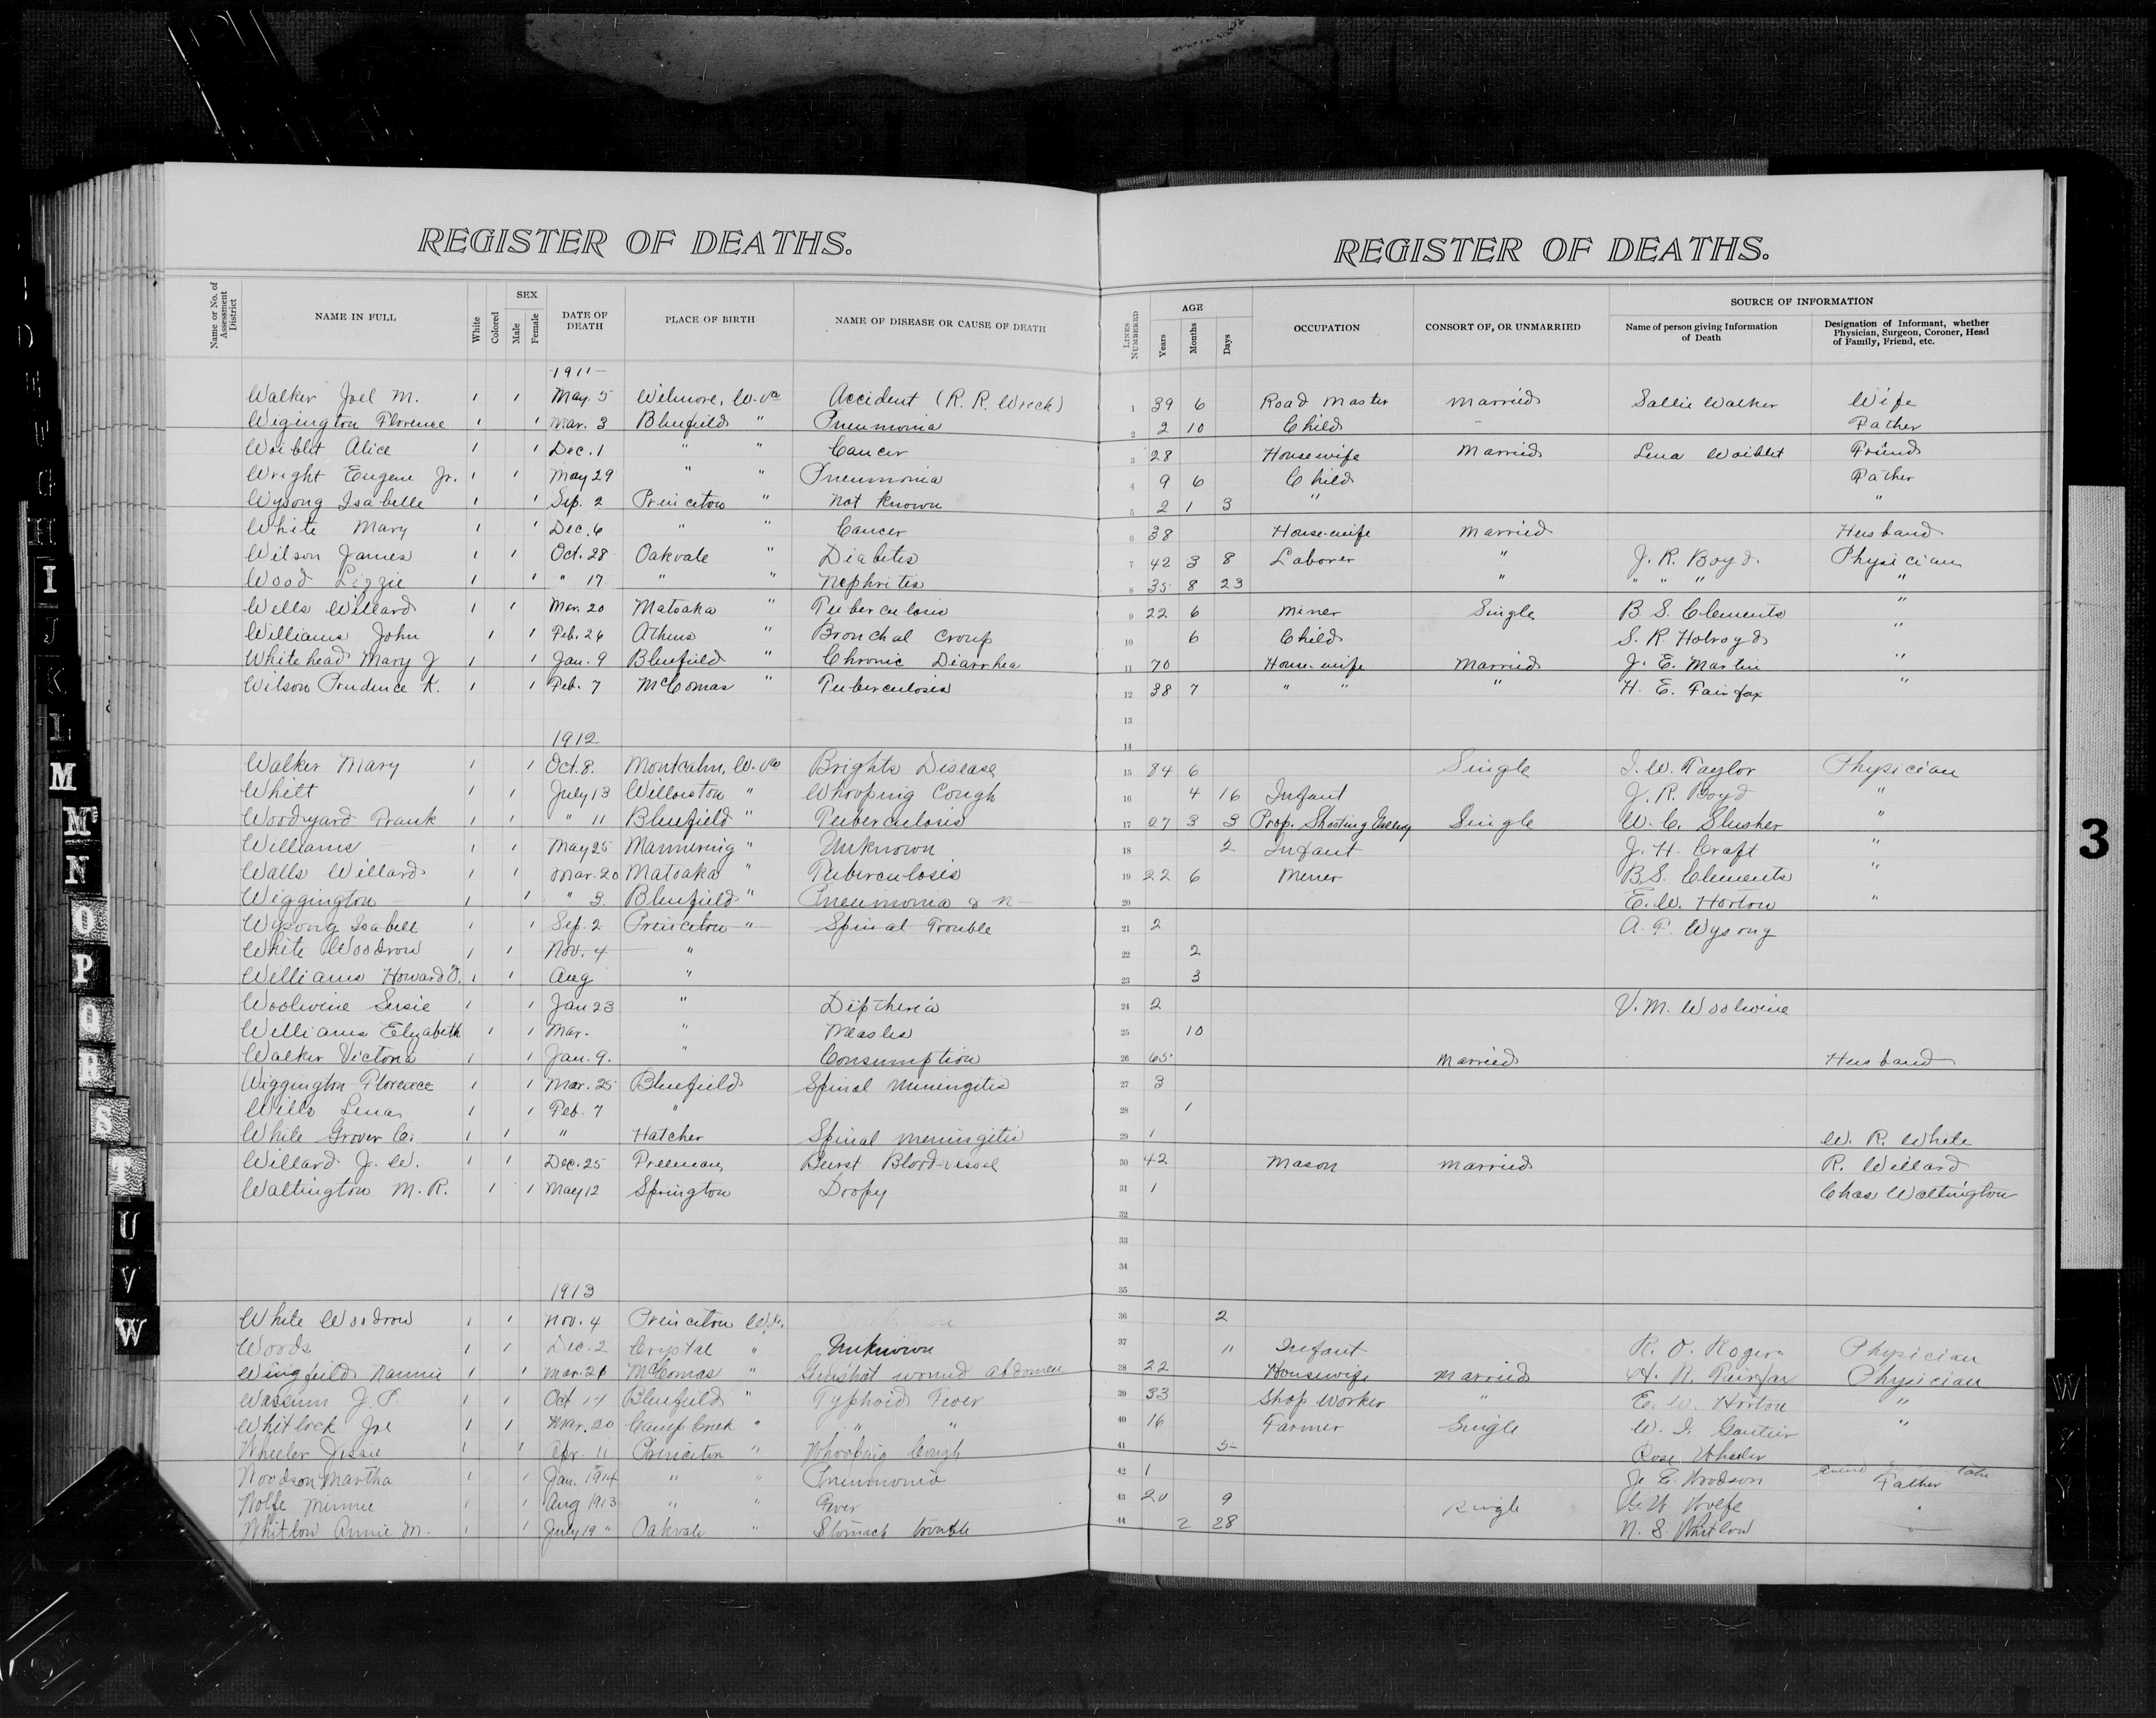 REGISTER OF DEATHS.
REGISTER OF DEATHS.
Name or No. of Assessment District
NAME IN FULL
White
Colored
SEX
Male
Female
DATE OF DEATH
PLACE OF BIRTH
NAME OF DISEASE OR CAUSE OF DEATH
LINES NUMBERED
AGE
Years
Months
Days
OCCUPATION
CONSORT OF, OR UNMARRIED
SOURCE OF INFORMATION
Name of person giving Information of Death
Designation of Informant, whether Physician, Surgeon, Coroner, Head of Family, Friend, etc.
1911
Walker Joel M. 1 1 May 5 Wilmore, W. Va Accident (R. R. Wreck) 1 39 6 Road Master Married Sallie Walker Wife
Wigington Florence 1 1 Mar. 3 Bluefield " Pneumonia 2 2 10 Child - Father
Woiblet Alice 1 1 Dec. 1 " " Cancer 3 28 Housewife Married Lena Woiblet Friend
Wright Eugene Jr. 1 1 May 29 " " Pneumonia 4 9 6 Child Father
Wysong Isabelle 1 1 Sep. 2 Princeton " Not Known 5 2 1 3 " "
White Mary 1 1 Dec. 6 " " Cancer 6 38 House-wife Married Husband
Wilson James 1 1 Oct. 28 Oakvale " Diabetis 7 42 3 8 Laborer " J. R. Boyd Physician
Wood Lizzie 1 1 " 17 " " Nephritis 8 35 8 23 " " " " "
Wells Willard 1 1 Mar. 20 Matoaka " Tuberculosis 9 22 6 Miner Single B. S. Clements "
Williams John 1 1 Feb. 26 Athens " Bronchal Croup 10 6 Child S. R. Holroyd "
Whitehead Mary J 1 1 Jan. 9 Bluefield " Chronic Diarrhea 11 70 House-wife Married J. E. Martin "
Wilson Prudence K. 1 1 Feb. 7 McComas " Tuberculosis 12 38 7 " " " H. E. Fairfax "
13
1912 14
Walker Mary 1 1 Oct. 8. Montcalm, W. Va Brights Disease 15 84 6 Single I. W. Taylor Physician
Whitt 1 1 July 13 Willowton " Whooping Cough 16 4 16 Infant J. R. Boyd "
Woodyard Frank 1 1 " 11 Bluefield " Tuberculosis 17 27 3 3 Prop. Shooting Gallery Single W. C. Slusher "
Williams 1 1 May 25 Mannering " Unknown 18 2 Infant J. H. Craft "
Walls Willard 1 1 Mar. 20 Matoaka " Tuberculosis 19 22 6 Miner B. S. Clements "
Wiggington 1 1 " 3. Bluefield " Pneumonia & n 20 E. W. Horton "
Wysong Isabell 1 1 Sep. 2 Princeton " Spinal Trouble 21 2 A. P. Wysong
White Woodrow 1 1 Nov. 4 " 22 2
Williams Howard O. 1 1 Aug " 23 3
Woolwine Susie 1 1 Jan 23 " Diptheria 24 2 V. M. Woolwine
Williams Elizabeth 1 1 Mar. " Measles 25 10
Walker Victoria 1 1 Jan. 9. " Consumption 26 65 Married Husband
Wiggington Florence 1 1 Mar. 25 Bluefield Spinal Meningitis 27 3
Wills Lena 1 1 Feb. 7 " 28 1
White Grover C. 1 1 " Hatcher Spinal Meningitis 29 1 W. R. White
Willard J. W. 1 1 Dec. 25 Freeman Burst Blood-vessel 30 42 Mason Married R. Willard
Waltington M. R. 1 1 May 12 Springton Dropy 31 1 Chas Waltington
32
33
34
1913 35
White Woodrow 1 1 Nov. 4 Princeton W. Va. 36 2
Woods 1 1 Dec. 2 Crystal " Unknown 37 " Infant R. O. Rogers Physician
Wingfield Nannie 1 1 Mar. 21 McComas " Gunshot wound abdomen 28 22 Housewife Married H. N. Fairfax Physician
Wassum J. P. 1 1 Oct 14 Bluefield " Typhoid Fever 39 33 Shop Worker " E. W. Horton "
Whitlock Joe 1 1 Mar. 20 Camp Creek " " " 40 16 Farmer Single W. I. Gautier "
Wheeler Jessie 1 1 Apr. 11 Princeton " Whooping Cough 41 5 Rose Wheeler
Woodson Martha 1 1 Jan. 1914 " " Pneumonia 42 1 J. E. Woodson Father
Wolfe Minnie 1 1 Aug 1913 " " Fever 43 20 9 Single G. W. Wolfe "
Whitlow Annie M. 1 1 July 19 " Oakvale " Stomach trouble 44 2 28 N. S. Whitlow "
3
H
I
J
K
L
M
Mc
N
O
P
Q
R
S
T
U
V
W